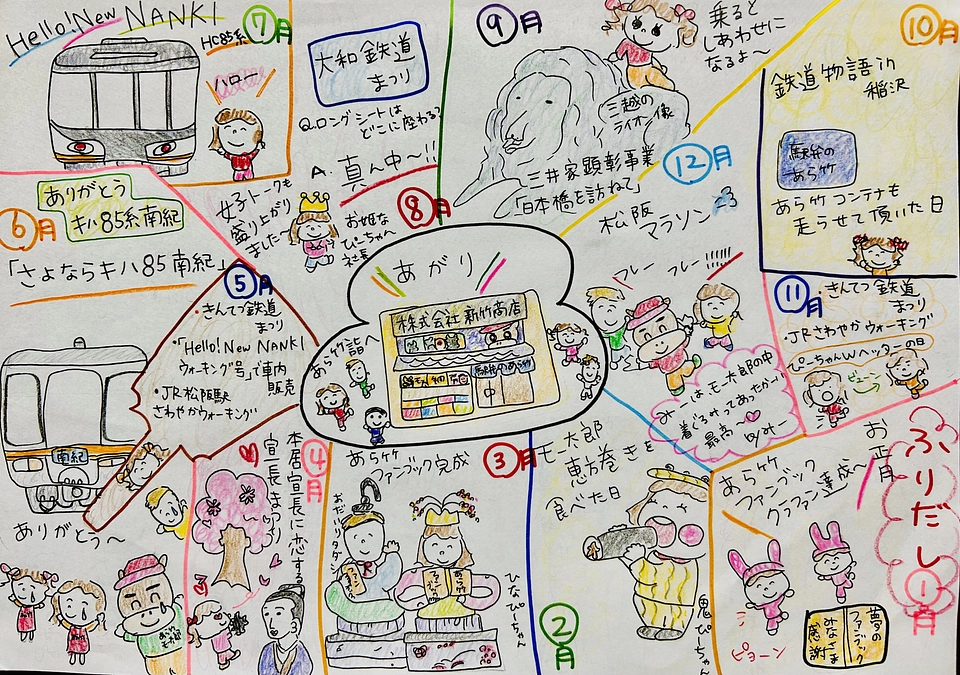 ふりだし
1月
お正月
あら竹
ファンブック
クラファン達成〜
ピョーン
夢の
ファンブック
みなさま
感謝
2月
モ太郎
恵方巻きを
食べた日
鬼ぴーちゃん
3月
あら竹
ファンブック完成
おだいりタダシ
ひなぴーちゃん
4月
本居宣長に恋する
宣長まつり
5月
・きんてつ鉄道
まつり
・「Hello!New NANKI
ウォーキング号」で車内
販売
・JR松阪駅
さわやかウォーキング
6月
ありがとう
キハ85系南紀
「さよならキハ85南紀」
南紀
ありがとう〜
7月
Hello!New NANKI
HC85系
ハロー
8月
大和鉄道
まつり
Q.ロングシートは
どこに座わる?
A.真ん中〜!!
女子トークも
盛り上がり
ました
お姫な
ぴーちゃん
社長
9月
乗ると
しあわせに
なるよ〜
三越の
ライオン像
三井家顕彰事業
「日本橋を訪ねて」
10月
鉄道物語in
稲沢
駅弁の
あら竹
あら竹コンテナも
走らせて頂いた日
11月
・きんてつ鉄道
まつり
・JRさわやかウォーキング
ぴーちゃんWヘッダーの日
ピューン
12月
松阪
マラソン
フレー フレー!!!!!!
みーは、モー太郎の中
着ぐるみってあったかー!
最高〜
by みー
あがり
株式会社 新竹商店
駅弁のあら竹
あら竹詣へ